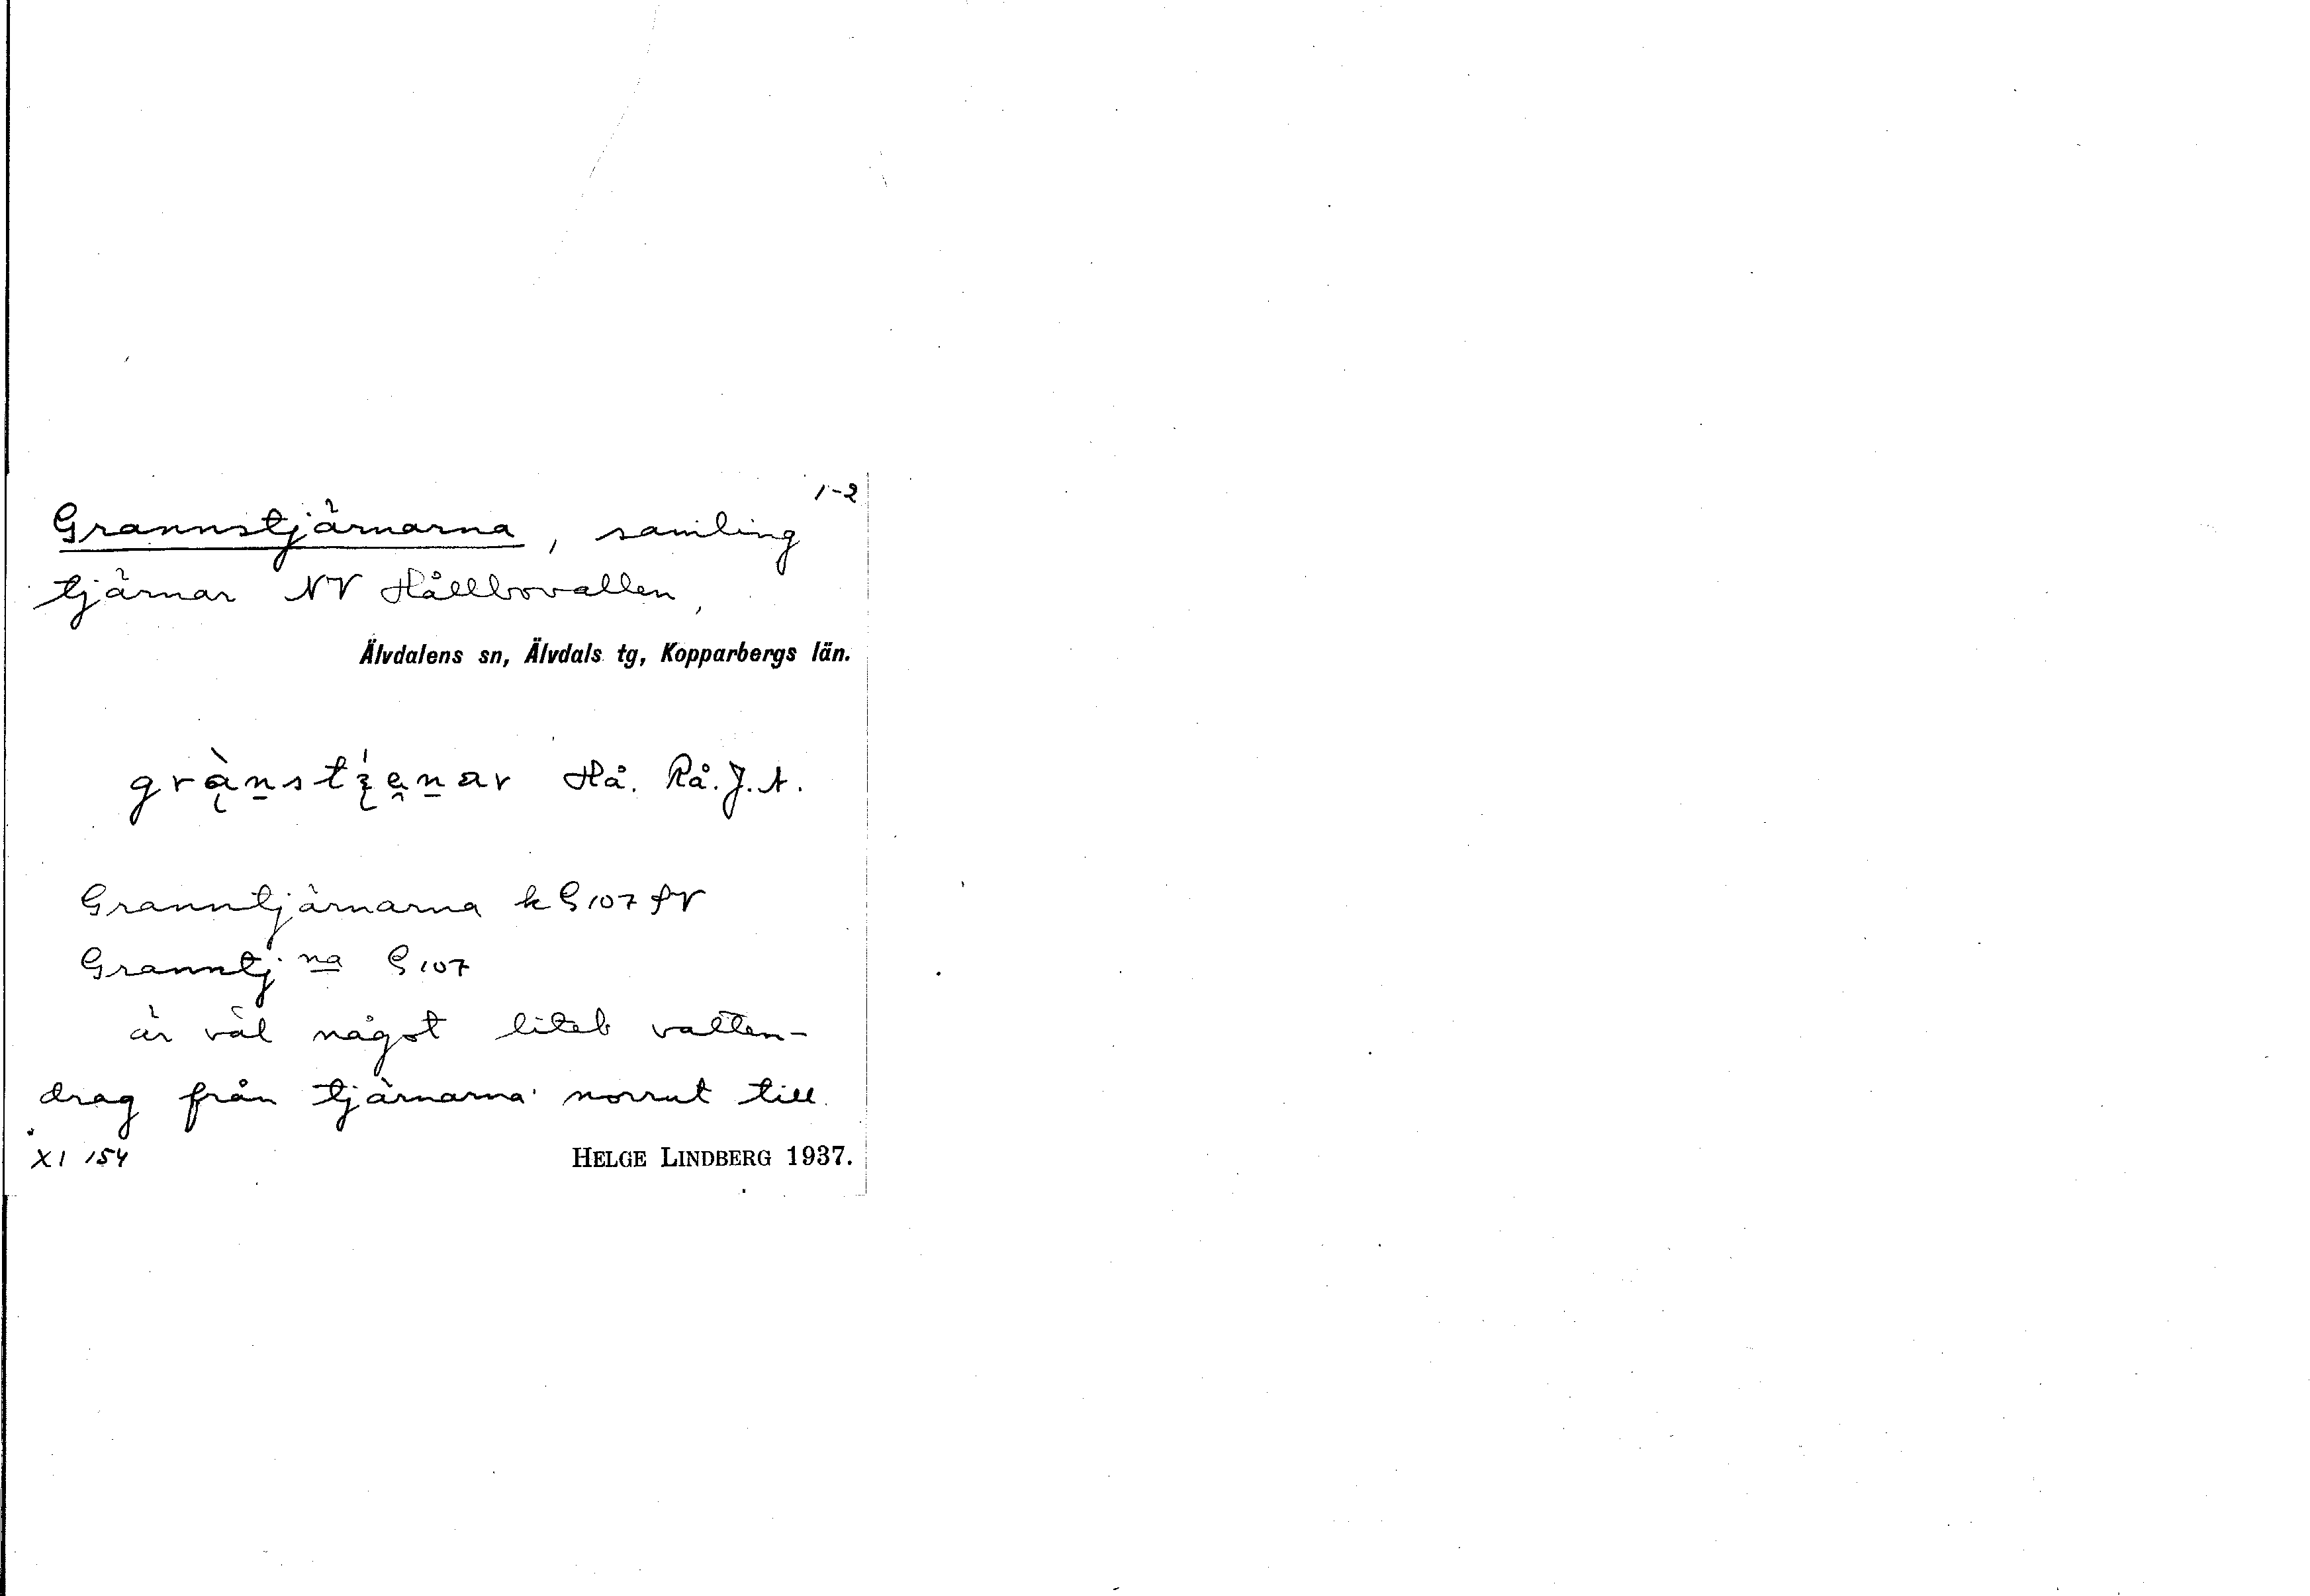 1-2
Grannstjärnarna, samling
tjärnar NV Hållbovallen,
Älvdalens sn, Älvdals tg, Kopparbergs län.
Hå. Rå. J. A.
Granntjärnarna k G 107 fV
Granntj na G 107
är väl något litet vatten-
drag från tjärnarna norrut till
XI 154 HELGE LINDBERG 1937.